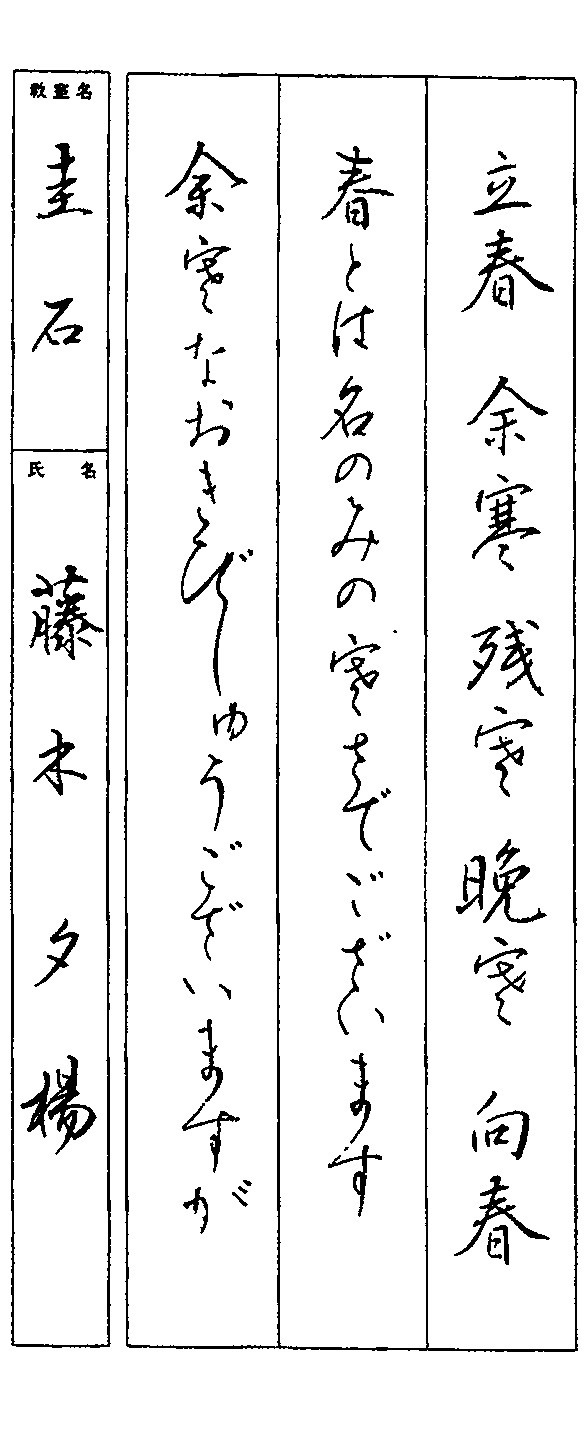 立春 余寒 残寒 晩寒 向春
春とは名のみの寒さでございます
余寒なおきびしゅうございますが
教室名
圭石
氏名
藤木夕楊